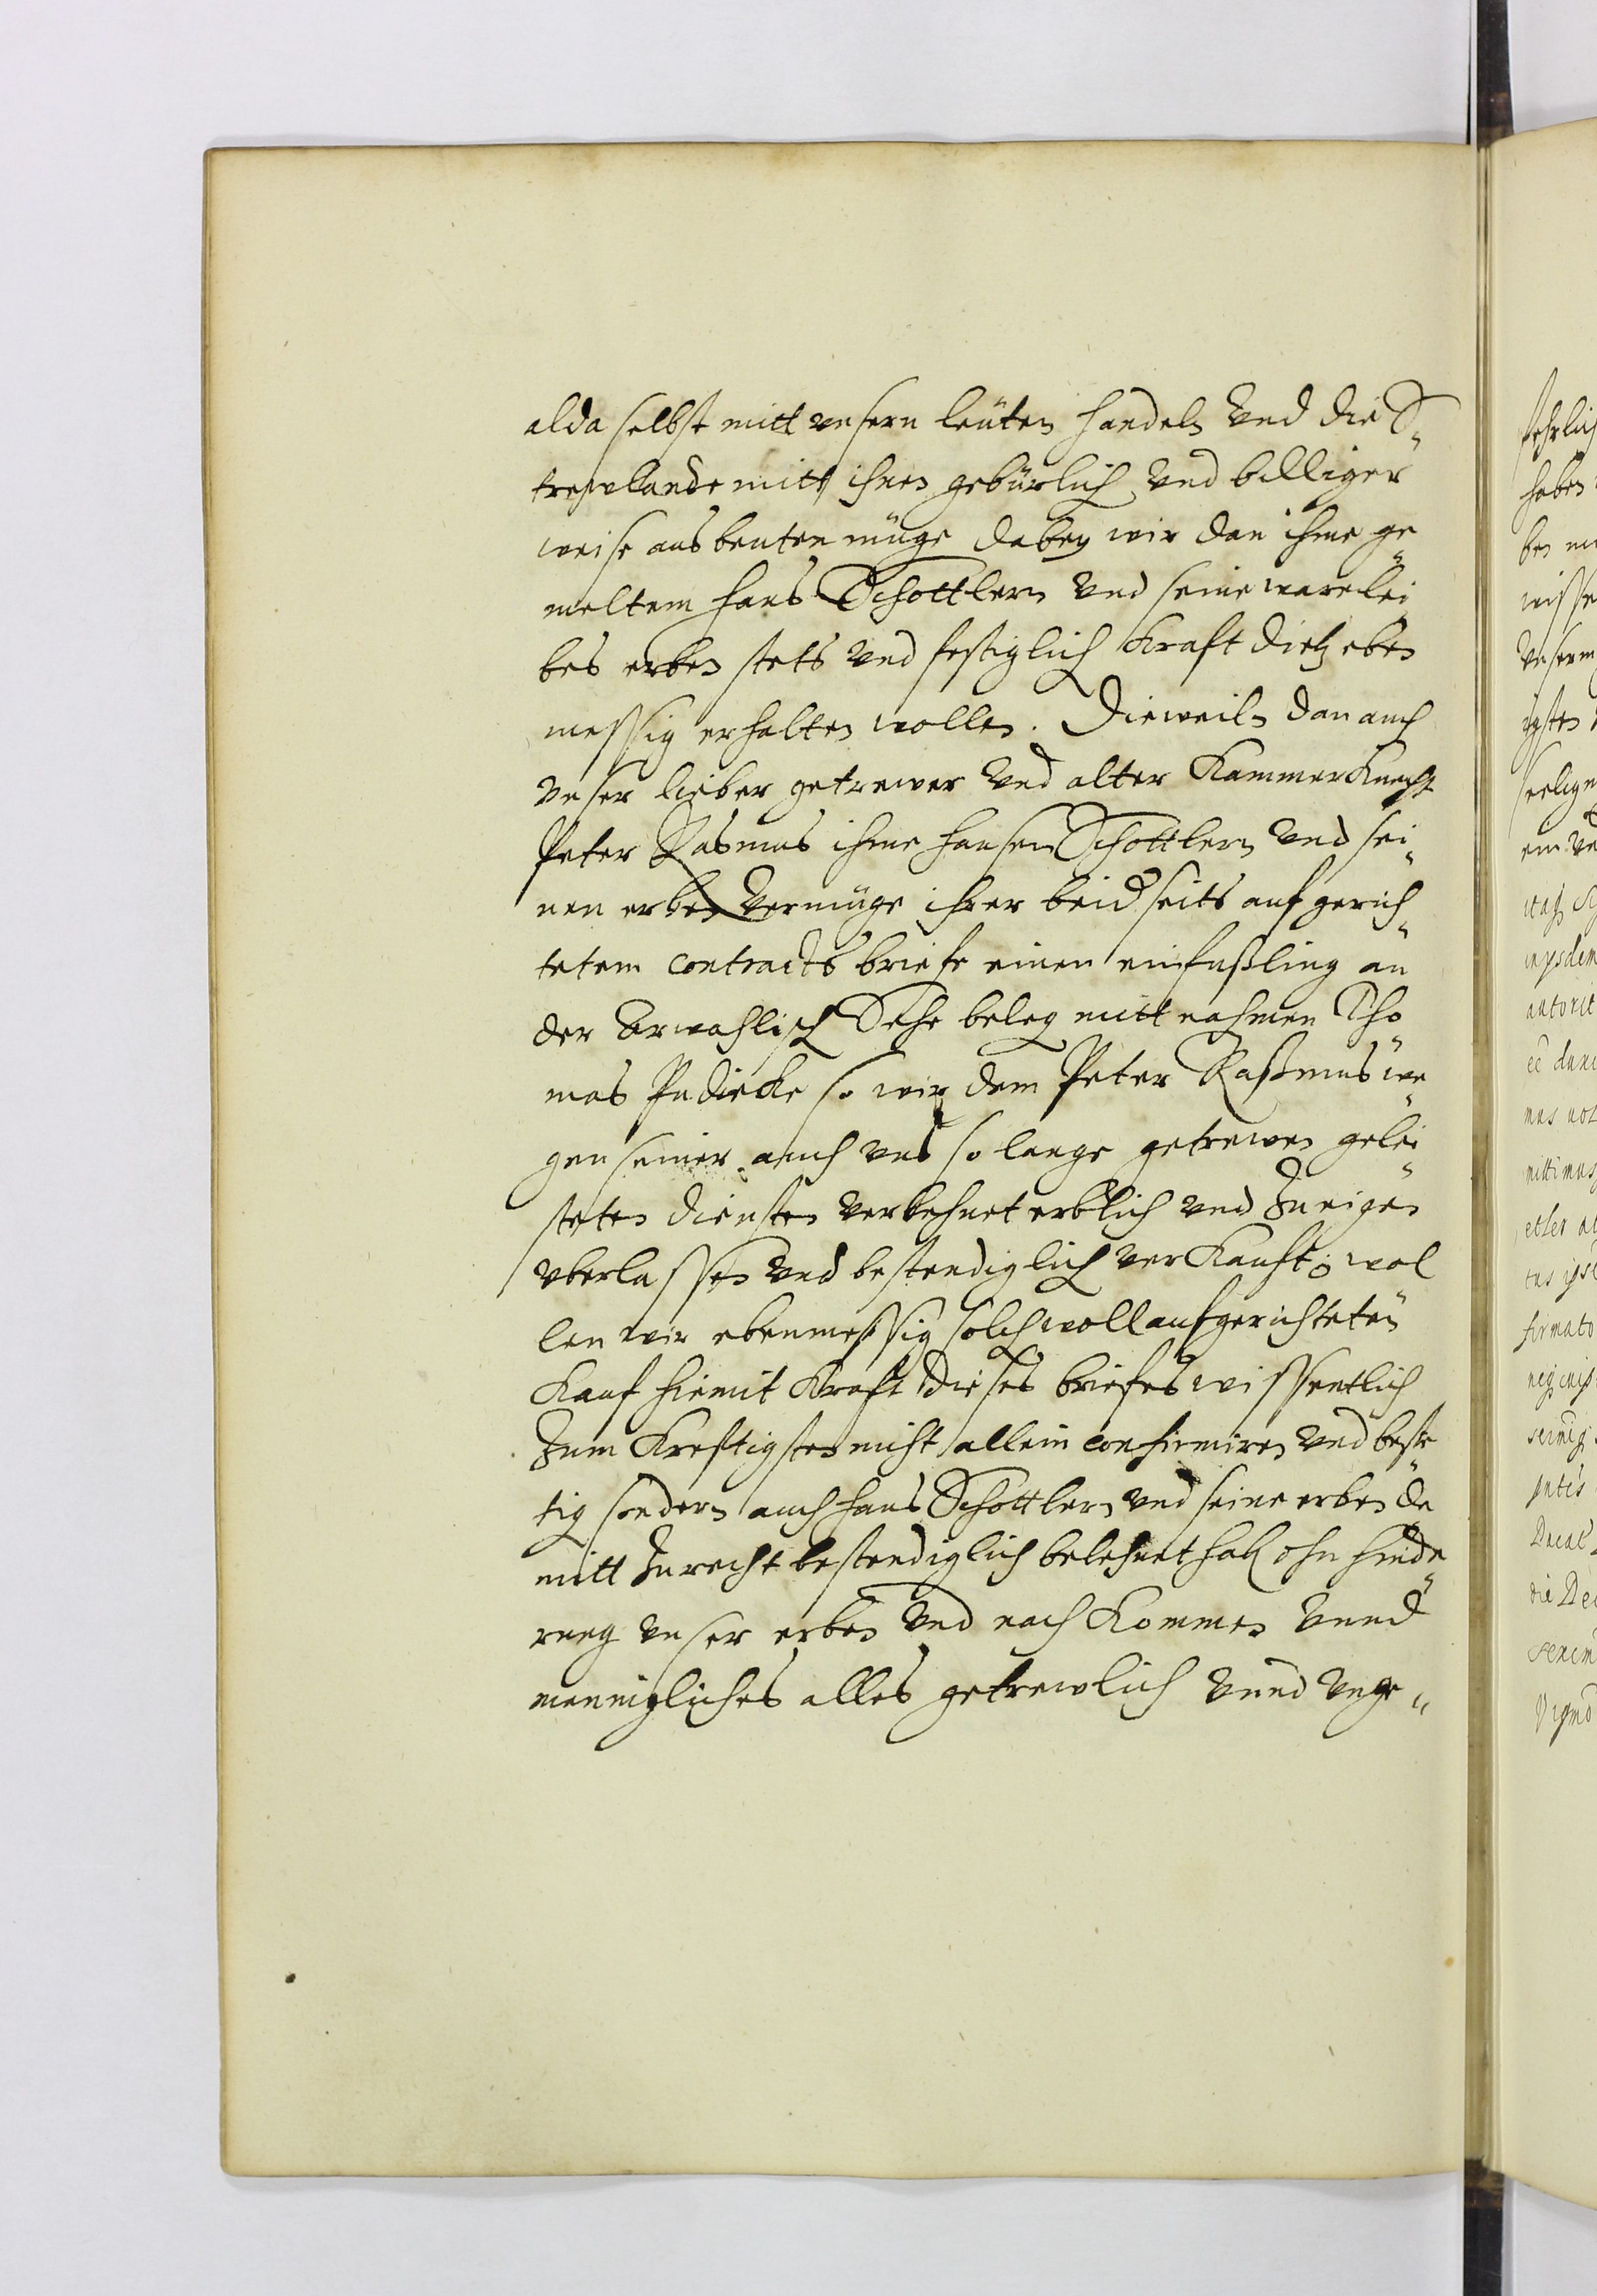 alda selbst mitt unsern leüten handeln und die S„
trewlande mitt ihnen gebürlich und billiger
weise ausbeuten müge dabey wir dan ihme ge„
meltem Hans Schottlern und seine ware lei
bes erben stets und festiglich Kraft dietz eben
messig erhalten wollen. Dieweiln dan auch
unser lieber getrewer und alter Kammerknecht
Peter Rasmus ihme Hansen Schottlern und sei„
nen erben vermüge ihrer beidseits auf gerich„
tetem contracts briefe einen einfüßling an
der Arwahlisch Sehe beleg mitt nahmen Tho„
mas Pudiecke so wir dem Peter Raßmus we„
gen seiner auch uns so lange getrewen gelei„
steten diensten verlehnet erblich und zu eigen
uberlassen und bestendiglich verkauft: wol„
len wir ebenmessig solch woll aufgerichteten
Kauf hiemit Kraft dieses briefes wissentlich
zum Kreftigsten nicht allein confirmiren und beste„
tig sondern auch Hans Schottlern und seine erben da„
mitt zu recht bestendiglich belehnet hab ohn hinde„
rung unser erben und nach kommen unnd
menniglichs alles getrewlich unnd unge„